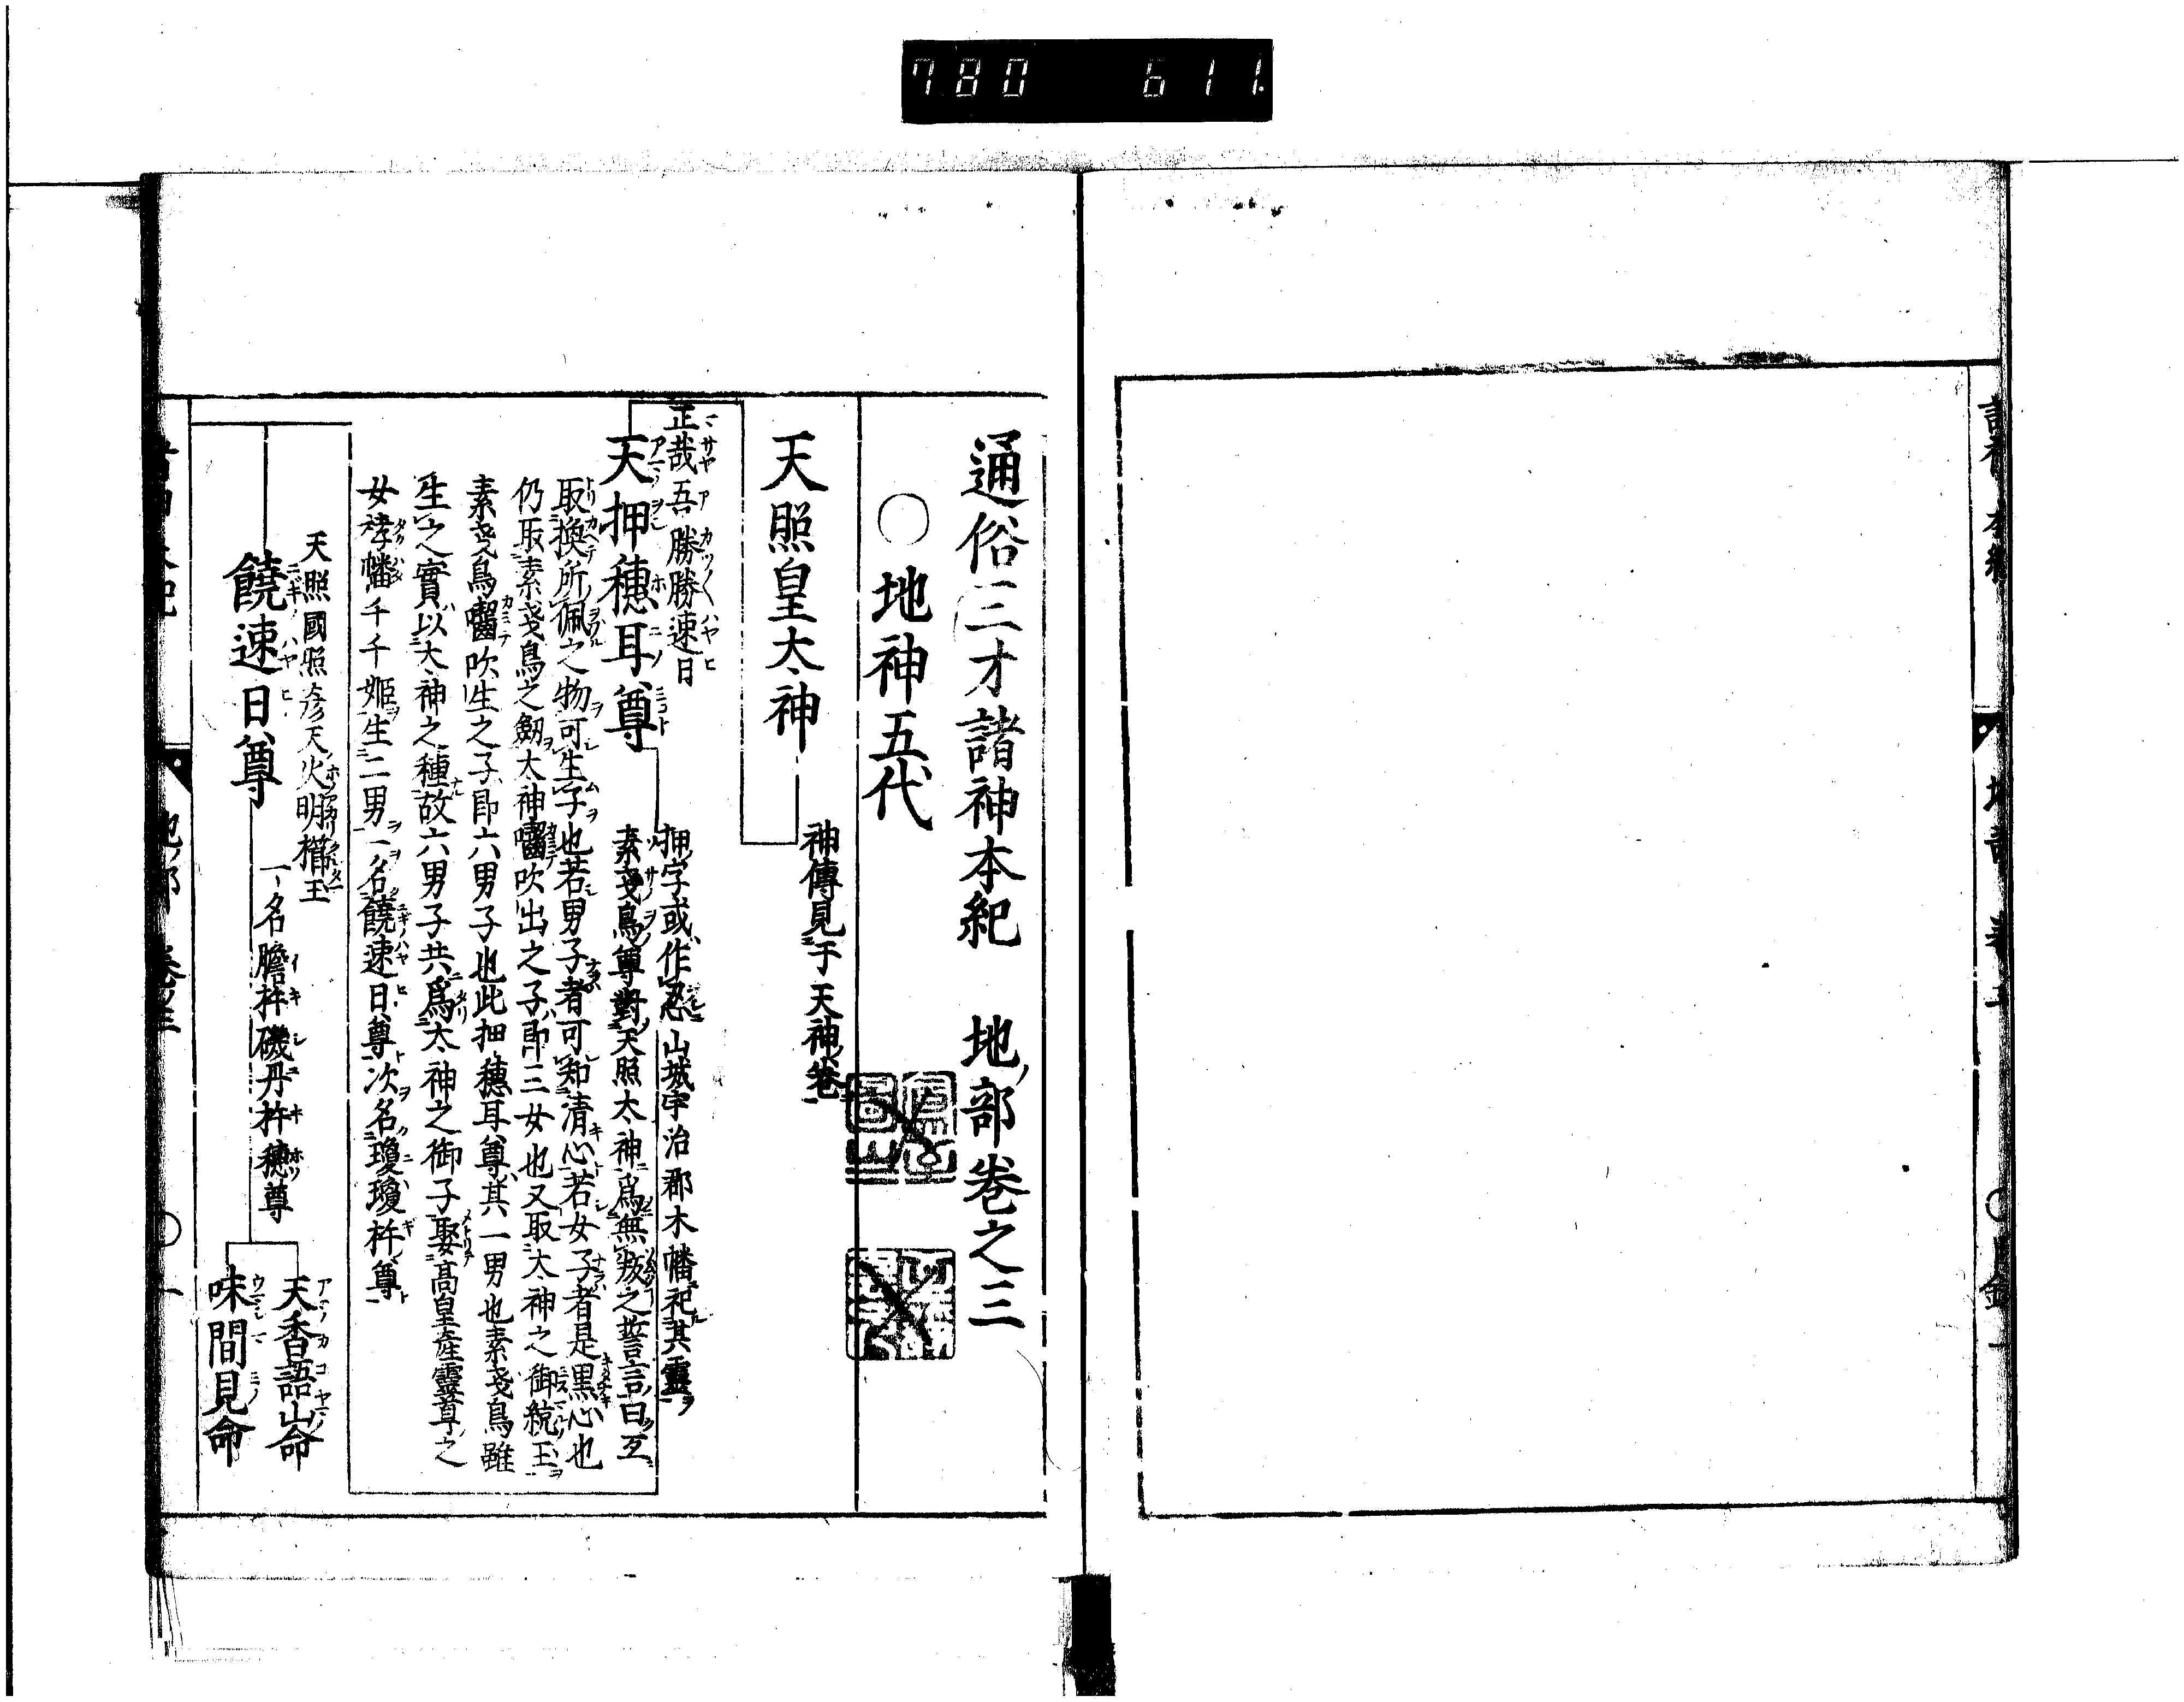 780 611.
通俗三才諸神本紀 地ノ部卷之三
○地神五代
天照皇太神
神傳見于天神ノ卷
正哉吾勝勝速日
天押穗耳尊
押字或作忍山城宇治郡木幡祀其靈
素戔烏尊對天照太神爲無叛之誓言曰互
取換所佩之物可生子也若男子者可知清心若女子者是黒心也
仍取素戔烏之劔太神囓吹出之子即三女也又取太神之御統玉
素戔烏囓吹生之子即六男子也此押穗耳尊其一男也素戔烏雖
生之實以太神之種故六男子共爲太神之御子娶高皇産靈尊之
女栲幡千千姫生二男一名饒速日尊次名瓊瓊杵尊
天照國照彦天火明櫛玉
饒速日尊
一名膽杵磯丹杵穗尊
天香語山命
味間見命
地ノ部 卷ノ三 ○ 一